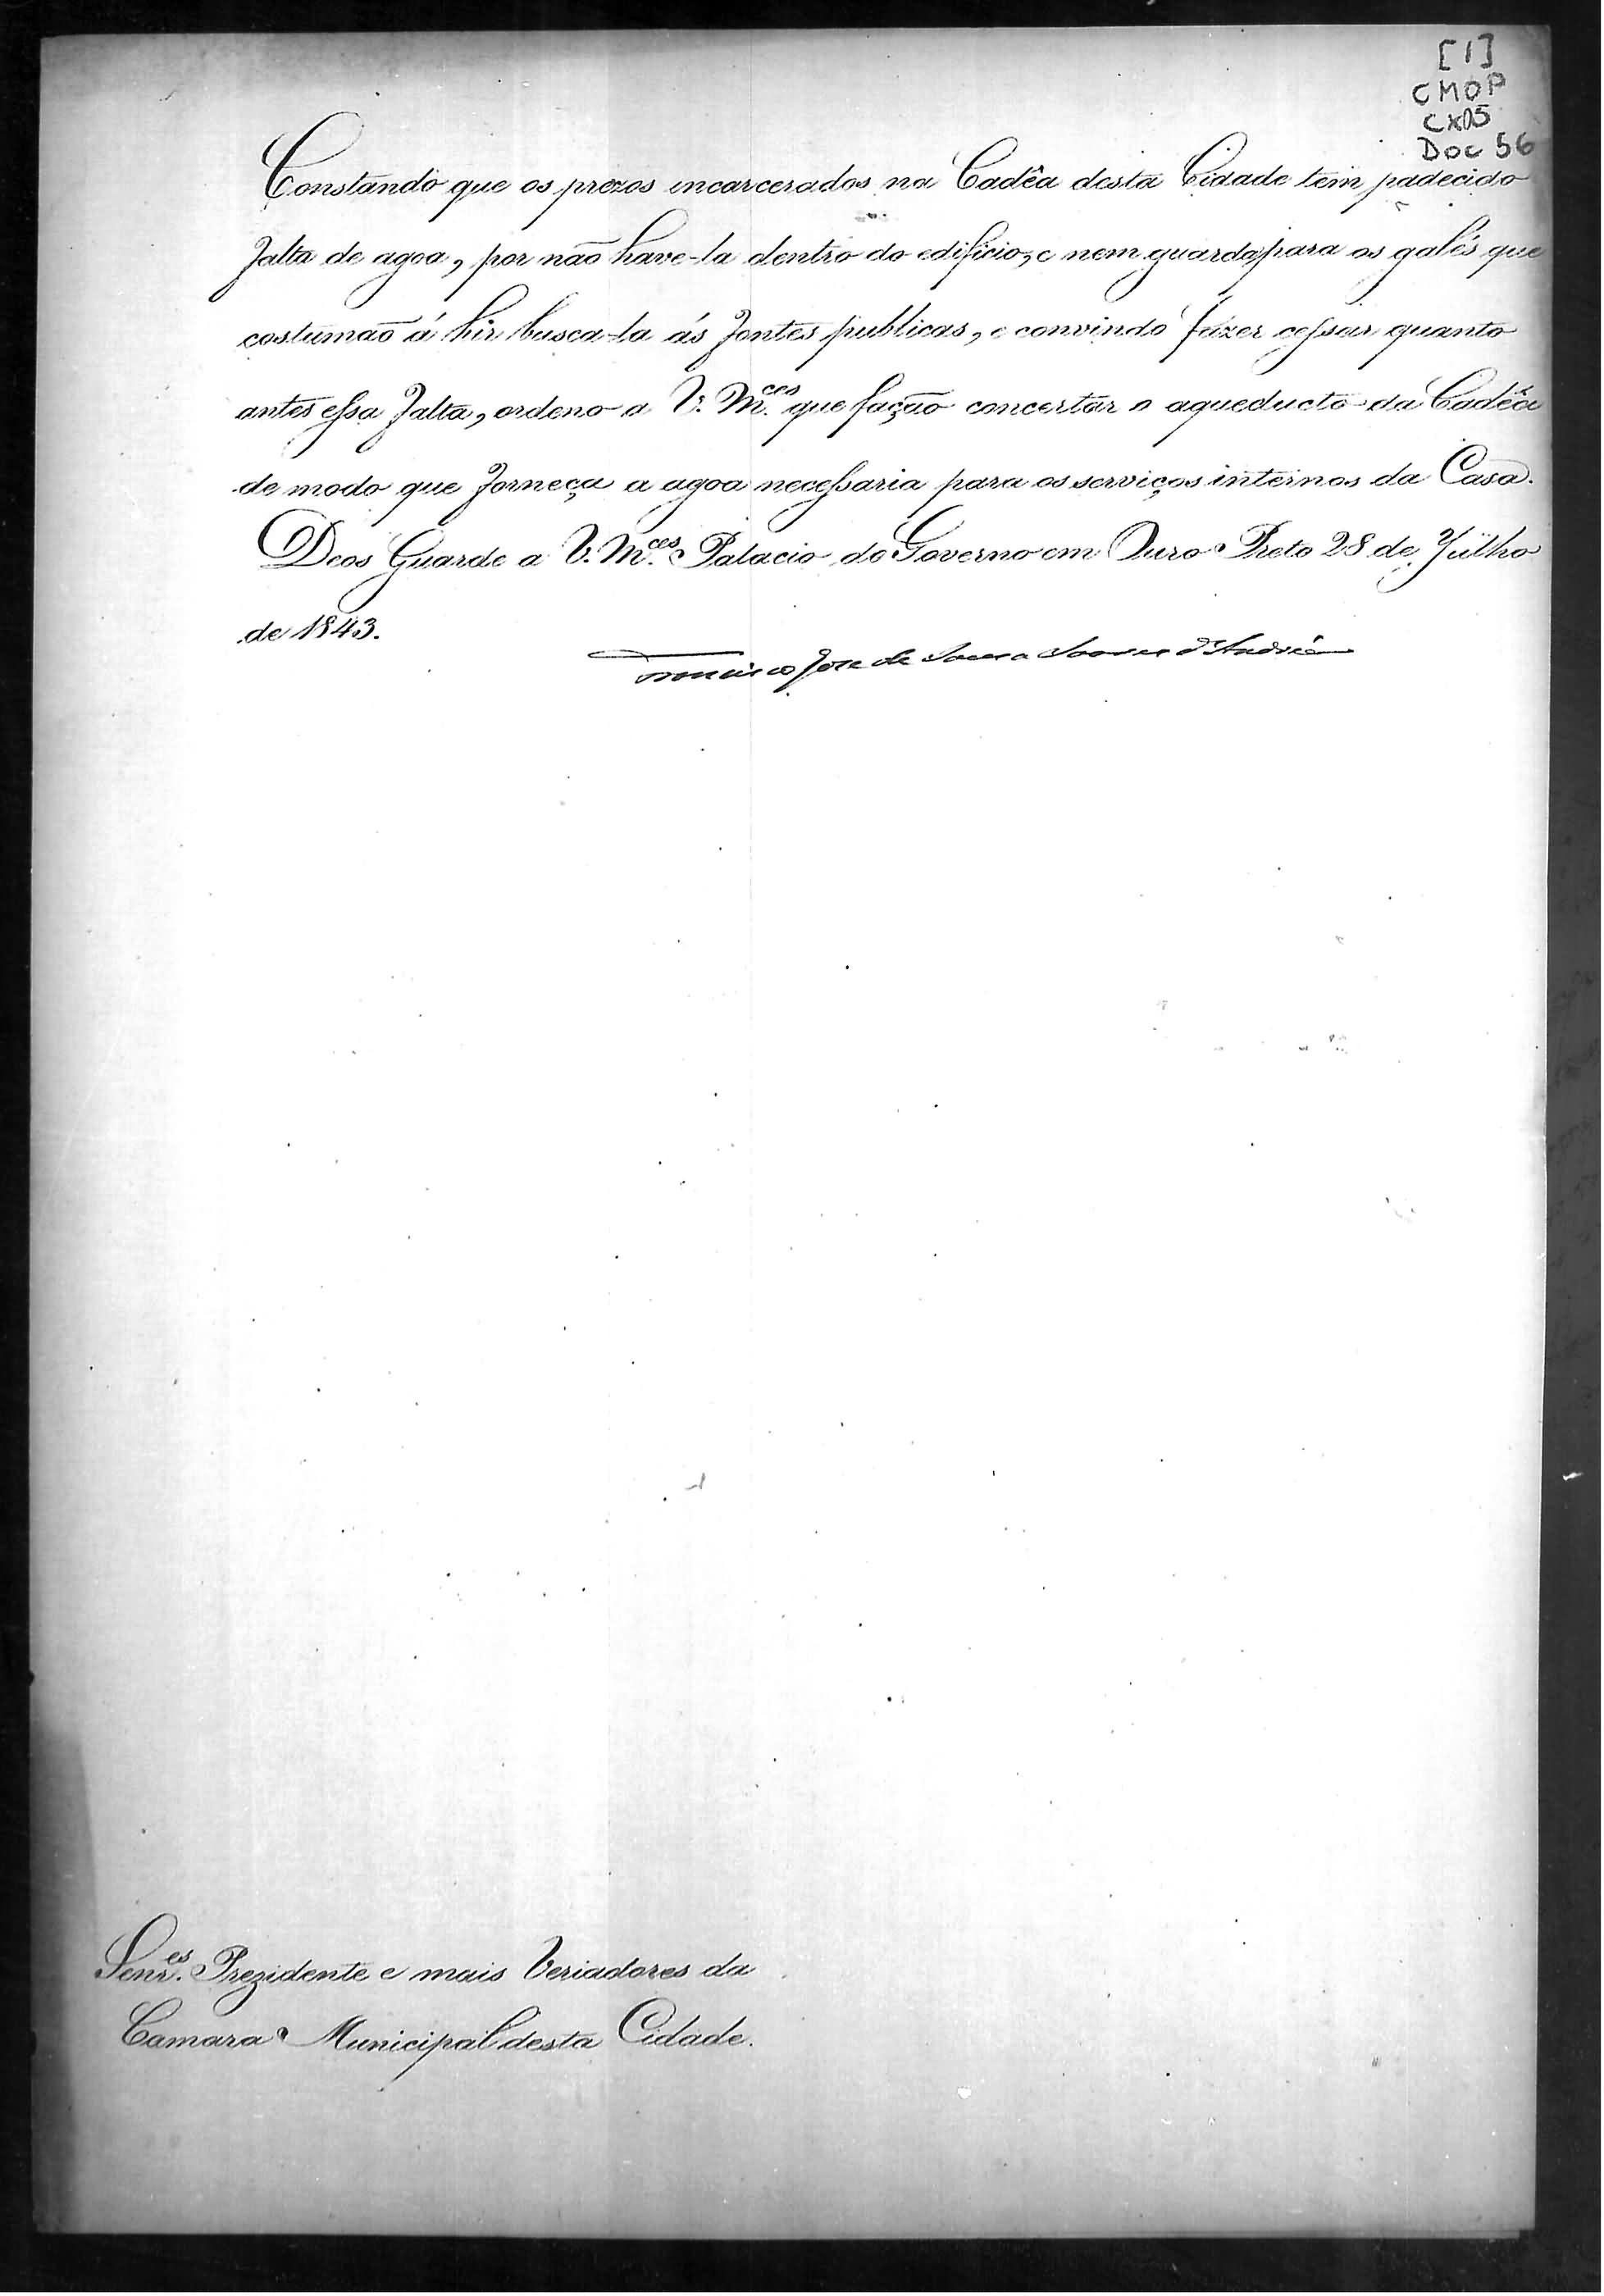 [1]
CMOP
CX05
Doc 56
Constando que os prezos encarcerados na Cadêa desta Cidade tem padecido
falta de agoa, por não have-la dentro do edificio, e nem guarda para os galés que
costumão á hir busca-la ás fontes publicas, e convindo fazer cessar quanto
antes essa falta, ordeno a V. M.ces que fação concertar o aqueducto da Cadêa
de modo que forneça a agoa necessaria para os serviços internos da Casa.
Deos Guarde a V. M.ces Palacio do Governo em Ouro Preto 28 de Julho
de 1843.
Francisco Jose de Sousa Soares d'Andréa
Senr.es Prezidente e mais Veriadores da
Camara Municipal desta Cidade.